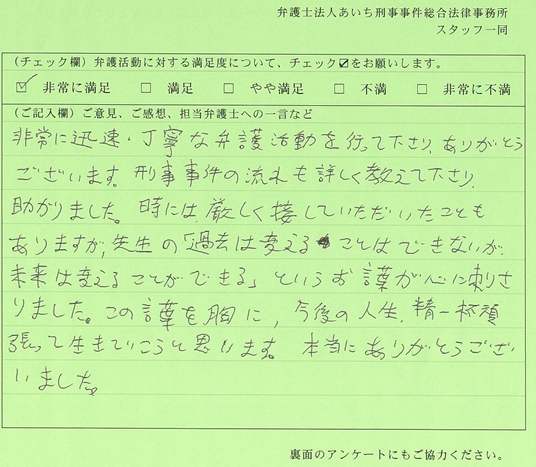 弁護士法人あいち刑事事件総合法律事務所
スタッフ一同
(チェック欄) 弁護活動に対する満足度について、チェック☑をお願いします。
☑ 非常に満足 □ 満足 □ やや満足 □ 不満 □ 非常に不満
(ご記入欄) ご意見、ご感想、担当弁護士への一言など
非常に迅速・丁寧な弁護活動を行って下さり、ありがとう
ございます。刑事事件の流れも詳しく教えて下さり、
助かりました。時には、厳しく接していただいたことも
ありますが、先生の「過去は変えることはできないが、
未来は変えることができる」というお言葉が心に刺さ
りました。この言葉を胸に、今後の人生、精一杯頑
張って生きていこうと思います。本当にありがとうござ
いました。
裏面のアンケートにもご協力ください。